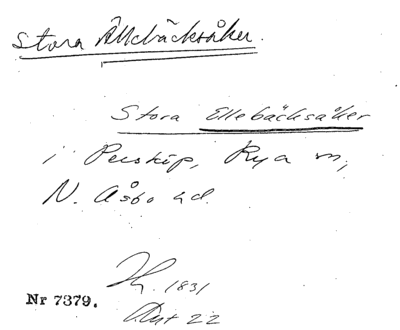 Stora Ällebäcksåker.
Stora Ellebäcksåker
i Perstorp, Rya sn,
N. Åsbo hd.
1831
Nr 7379.
Akt 22